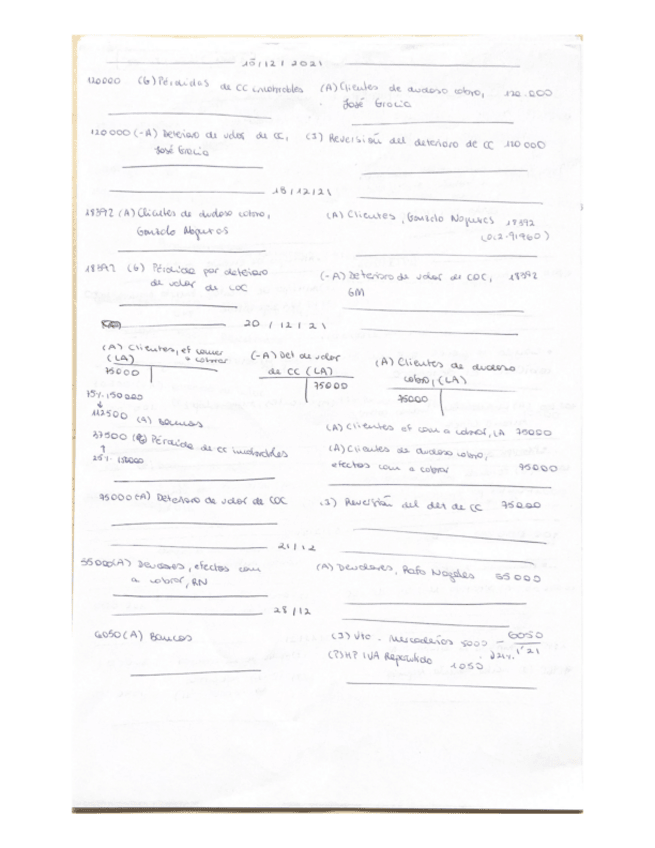 15/12/2021
120000 (G) Pérdidas de CC incobrables (A) Clientes de dudoso cobro, 120.000
José
120000 (-A) Deterioro de valor de CC, (I) Reversión del deterioro de CC 120000
José
18/12/21
18392 (A) Clientes de dudoso cobro, (A) Clientes, Gonzalo 18392
Gonzalo
18392 (G) Pérdida por deterioro (-A) Deterioro de valor de COC, 18392
de valor de COC GM
20/12/21
(A) Clientes, ef comer (-A) Det de valor (A) Clientes de dudoso
(LA) a cobrar de CC (LA) cobro, (LA)
75000 75000 75000
75%. 150000
112500 (A) Bancos (A) Clientes ef com a cobrar, LA 75000
37500 (G) Pérdida de CC incobrables (A) Clientes de dudoso cobro,
25%. 150000 efectos com a cobrar 75000
75000 (-A) Deterioro de valor de COC (I) Reversión del det de CC 75000
21/12
55000 (A) Deudores, efectos com (A) Deudores, Rafa 55000
a cobrar, RN
28/12
6050 (A) Bancos (I) Vta. mercaderías 5000 - 6050
1'21
(P) HP IVA Repercutido 1050 21%.